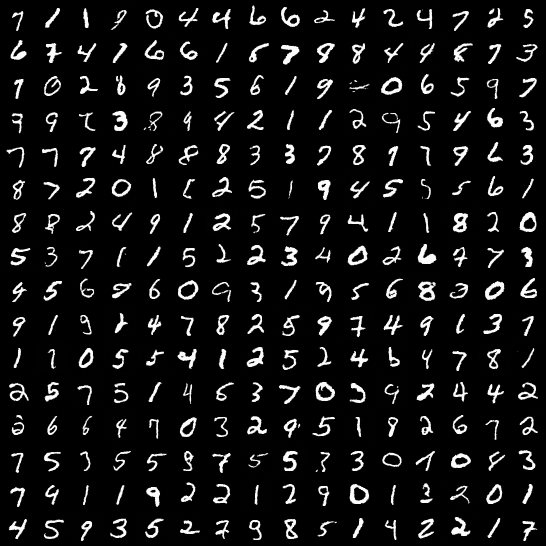 7 1 1 9 0 4 4 6 6 2 4 2 4 7 2 5
6 7 4 1 6 6 1 8 7 8 8 4 4 8 7 3
1 0 2 8 9 3 5 6 1 9 0 6 5 9 7
7 9 2 3 8 9 4 2 1 1 2 9 5 4 6 3
7 7 9 4 8 8 8 3 3 7 8 1 7 9 6 3
8 7 2 0 1 2 5 1 9 4 5 5 5 6 1
8 8 2 4 9 1 2 5 7 9 4 1 1 8 2 0
5 3 7 1 1 5 2 2 3 4 0 2 6 7 7 3
4 5 6 8 6 0 9 3 1 9 5 6 8 0 6
9 1 9 2 4 7 8 2 5 9 7 4 9 1 3 7
1 7 0 5 5 4 1 2 5 2 4 6 4 7 8 1
2 5 7 5 1 4 6 3 7 0 9 2 4 4 2
2 6 6 4 7 0 3 2 9 5 1 8 2 6 7 2
7 5 3 5 5 9 7 5 5 3 3 0 1 0 8 3
7 9 1 1 9 2 2 1 2 9 0 1 3 2 0 1
4 5 9 3 5 2 7 9 8 5 1 4 2 2 1 7